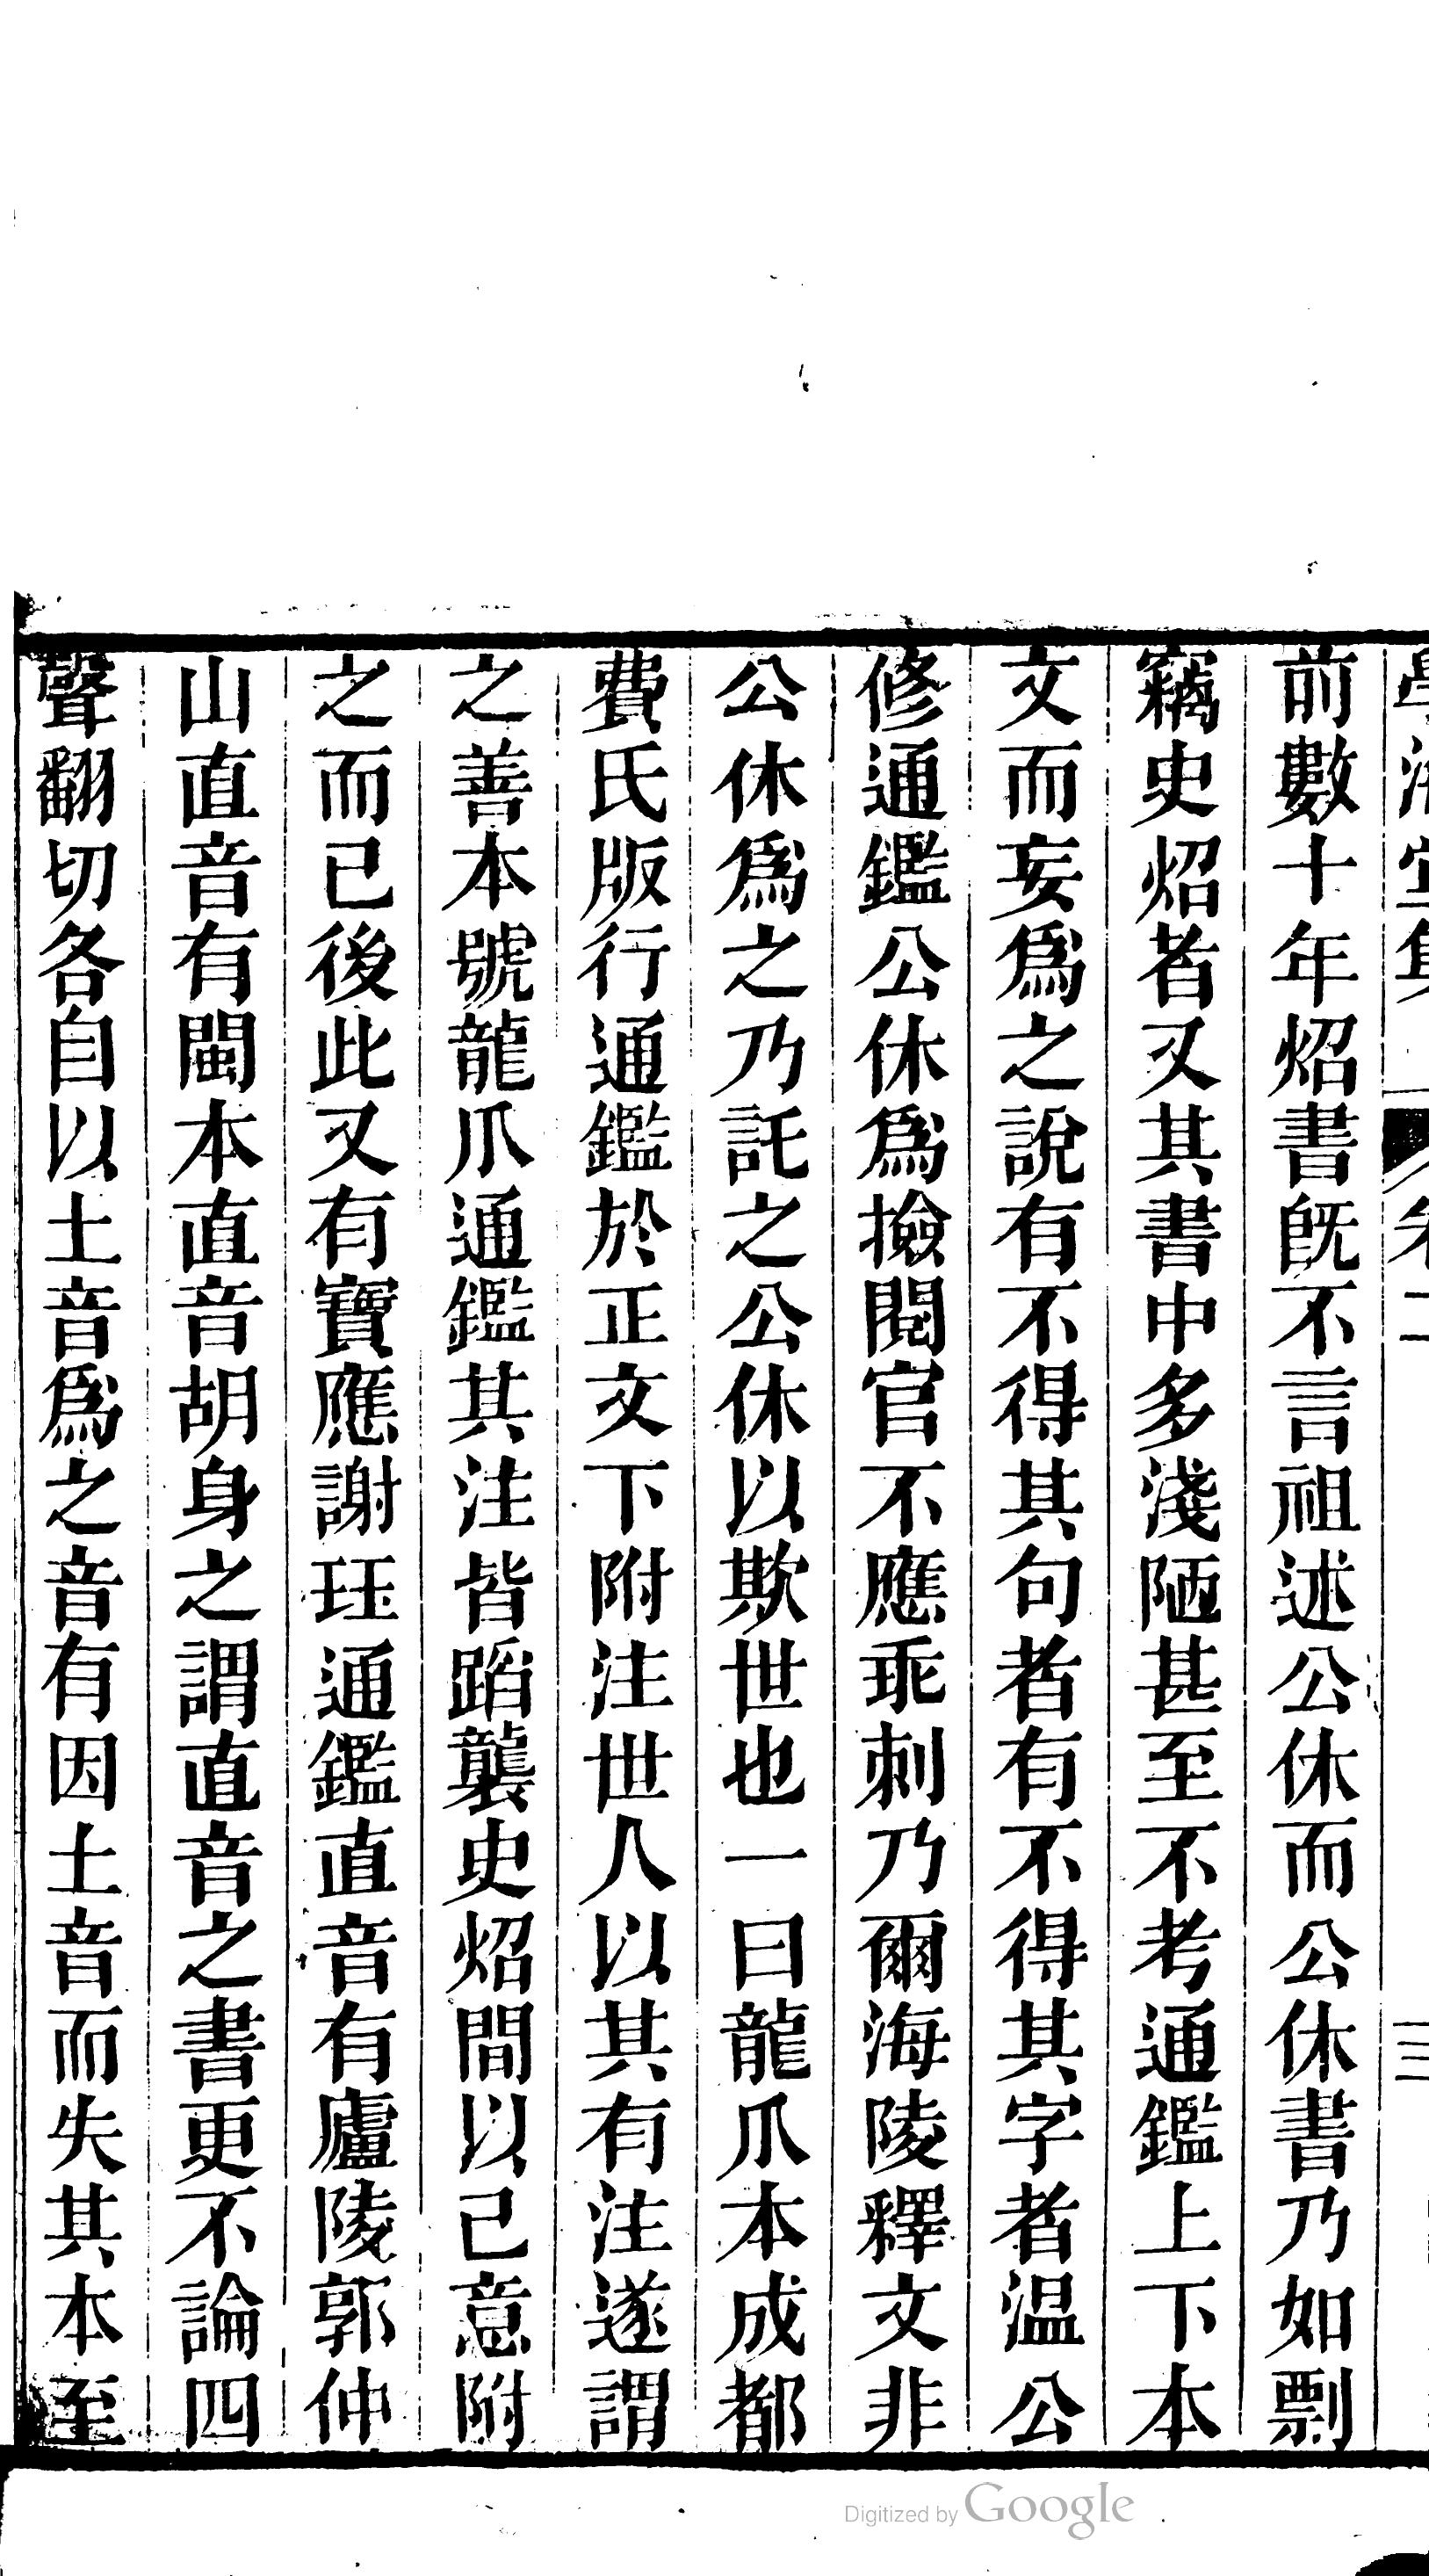 前數十年炤書旣不言祖述公休而公休書乃如剽
竊史炤者又其書中多淺陋甚至不考通鑑上下本
文而妄爲之說有不得其句者有不得其字者温公
修通鑑公休爲撿閱官不應乖刺乃爾海陵釋文非
公休爲之乃託之公休以欺世也一曰龍爪本成都
費氏版行通鑑於正文下附注世人以其有注遂謂
之善本號龍爪通鑑其注皆蹈襲史炤間以己意附
之而已後此又有寶應謝珏通鑑直音有廬陵郭仲
山直音有閩本直音胡身之謂直音之書更不論四
聲翻切各自以土音爲之音有因土音而失其本至
Digitized by Google